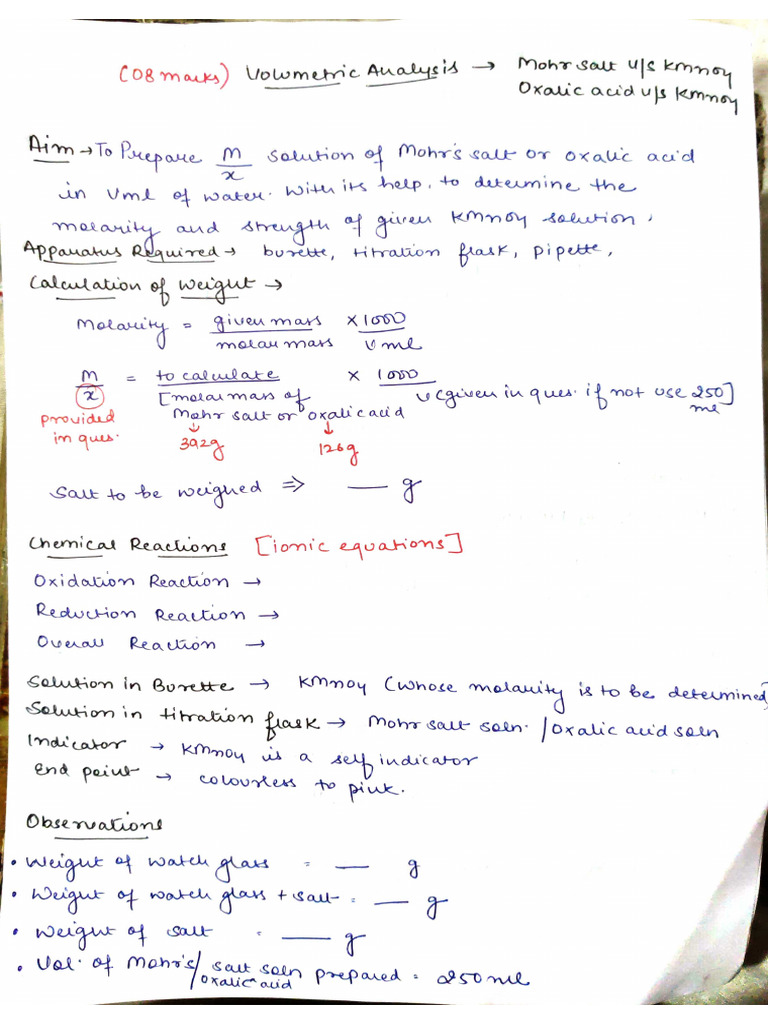 (08 marks) Volumetric Analysis → Mohr salt v/s KMnO4
Oxalic acid v/s KMnO4
Aim → To Prepare M/x solution of Mohr's salt or oxalic acid
in Vml of water. With its help, to determine the
molarity and strength of given KMnO4 solution.
Apparatus Required → burette, titration flask, pipette,
Calculation of weight →
Molarity = given mass/molar mass × 1000/V ml
M/x = to calculate/[molar mass of Mohr salt or oxalic acid × 1000/V(given in ques. if not use 250] ml
provided in ques.
392g 126g
Salt to be weighed ⇒ — g
Chemical Reactions [ionic equations]
Oxidation Reaction →
Reduction Reaction →
Overall Reaction →
Solution in Burette → KMnO4 (whose molarity is to be determined)
Solution in titration flask → Mohr salt soln. / Oxalic acid soln
Indicator → KMnO4 is a self indicator
end point → colourless to pink.
Observations
• Weight of watch glass = — g
• Weight of watch glass + salt = — g
• Weight of salt = — g
• Vol. of Mohr's/oxalic acid salt soln prepared = 250 ml